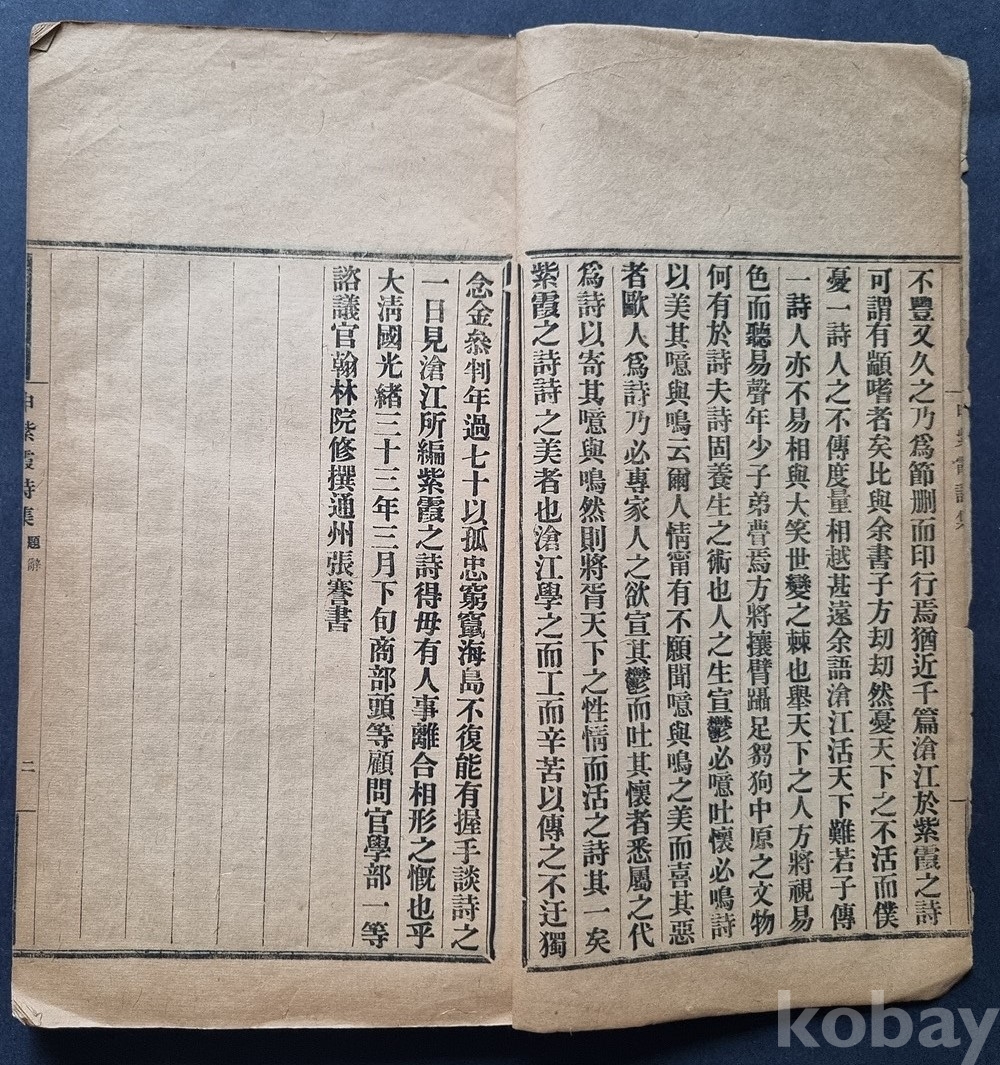 不豐又久之乃爲節刪而印行焉猶近千篇滄江於紫霞之詩
可謂有顓嗜者矣比與余書子方劫劫然憂天下之不活而僕
憂一詩人之不傳度量相越甚遠余語滄江活天下難若子傳
一詩人亦不易相與大笑世變之棘也舉天下之人方將視易
色而聽易聲年少子弟曹焉方將攘臂躡足芻狗中原之文物
何有於詩夫詩固養生之術也人之生宣鬱必噫吐懷必鳴詩
以美其噫與鳴云爾人情甯有不願聞噫與鳴之美而喜其惡
者歐人爲詩乃必專家人之欲宣其鬱而吐其懷者悉屬之代
爲詩以寄其噫與鳴然則將胥天下之性情而活之詩其一矣
紫霞之詩詩之美者也滄江學之而工而辛苦以傳之不迂獨
念金叅判年過七十以孤忠窮竄海島不復能有握手談詩之
一日見滄江所編紫霞之詩得毋有人事離合相形之慨也乎
大清國光緒三十三年三月下旬商部頭等顧問官學部一等
諮議官翰林院修撰通州張謇書
申紫霞詩集 題辭 二
kobay